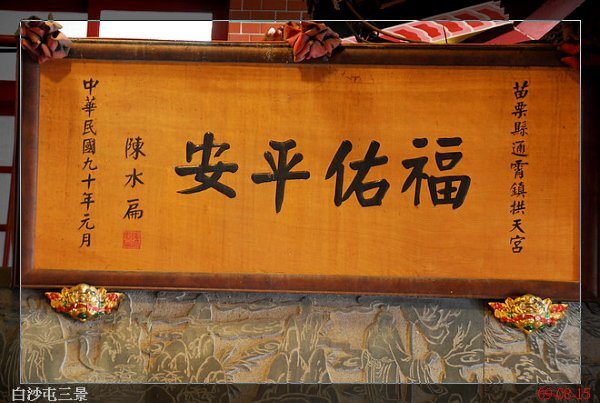 苗栗縣通霄鎮拱天宮
福佑平安
陳水扁
中華民國九十年元月
白沙屯三景
09-08-15